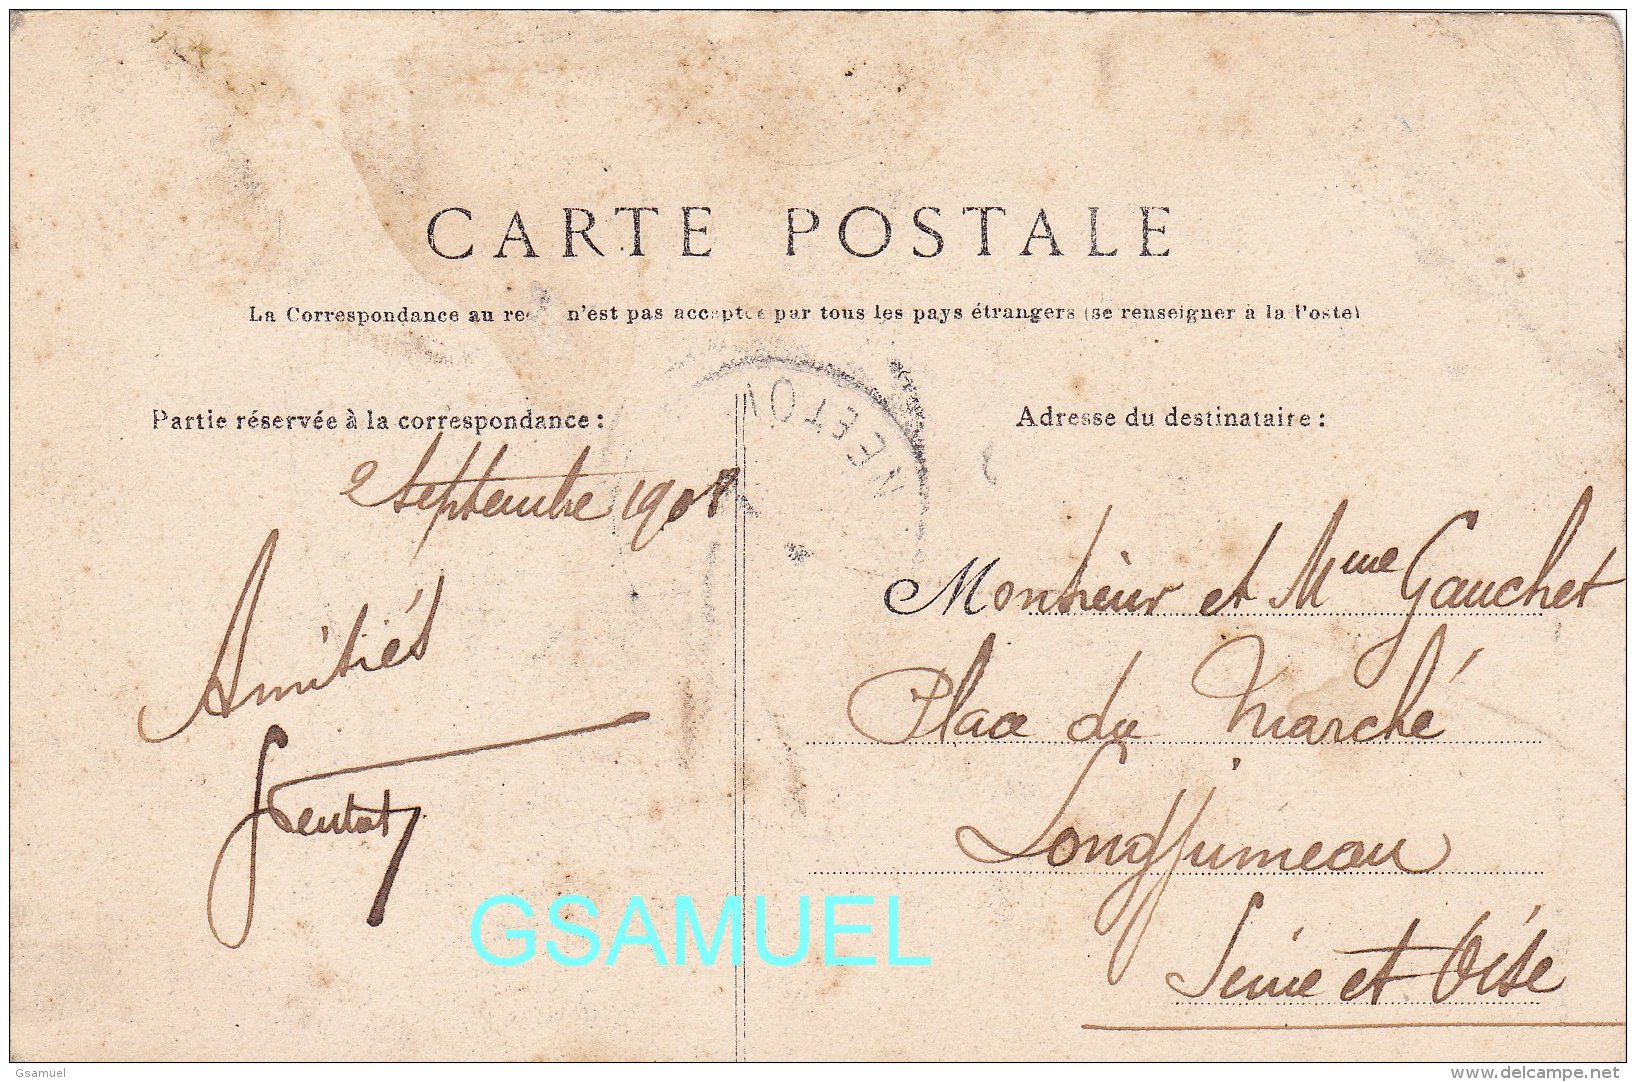 CARTE POSTALE
La Correspondance au n'est pas acceptée par tous les pays étrangers (se renseigner à la Poste)
Partie réservée à la correspondance :
Adresse du destinataire :
2 Septembre 1908
Amitiés
Monsieur et Mme Gauchet
Place du Marché
Longjumeau
Seine et Oise
GSAMUEL
Gsamuel
delcampe.net